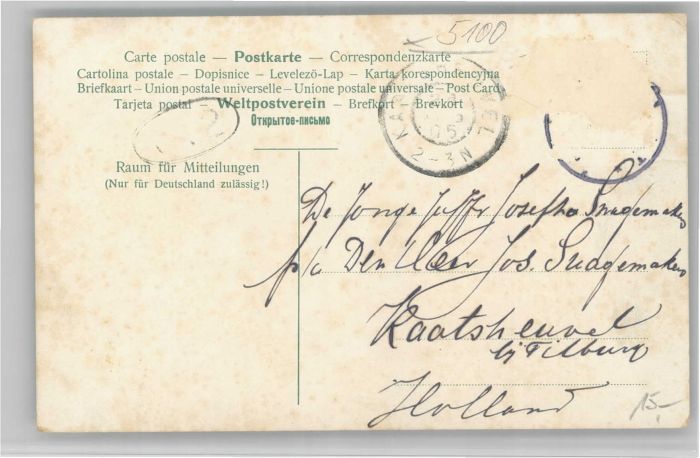 5100
Carte postale — Postkarte — Correspondenzkarte
Cartolina postale – Dopisnice – Levelezö-Lap – Karta korespondencyjna
Briefkaart – Union postale universelle – Unione postale universale – Post Card
Tarjeta postal – Weltpostverein – Brefkort – Brevkort
Открытое-письмо
2-3N
Raum für Mitteilungen
(Nur für Deutschland zulässig!)
De Jonge Juffr Josepha Snagemakers
p/a Den Heer Jos. Snagemakers
Kaatsheuvel
bij Tilburg
Holland
15,-